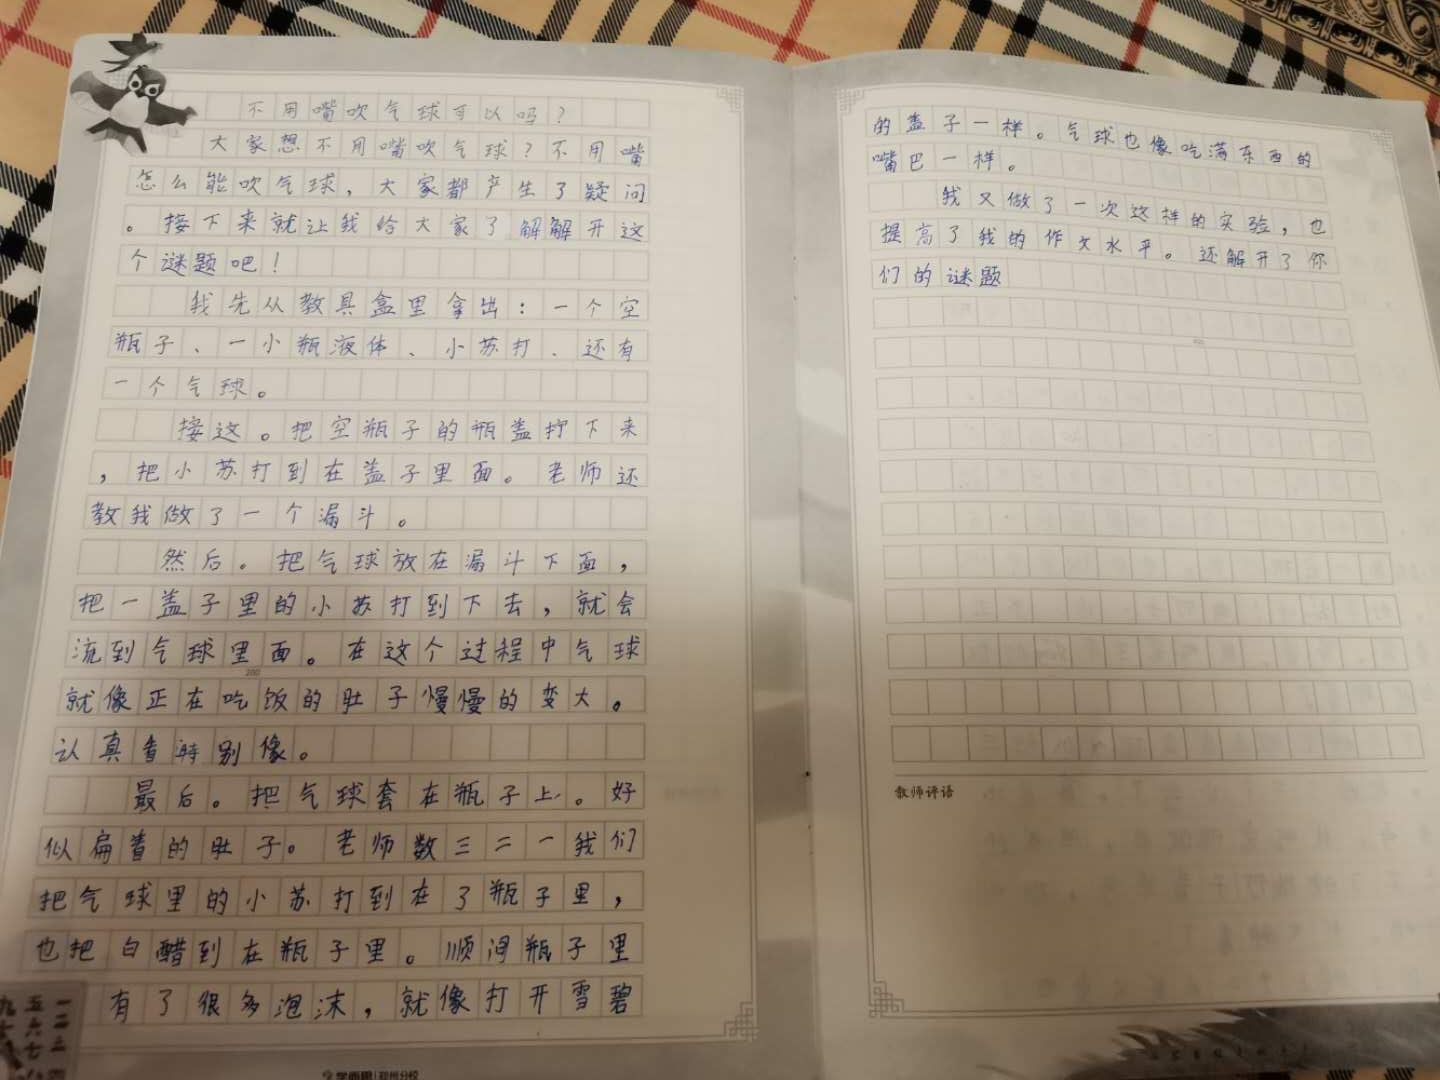 不用嘴吹气球可以吗?
大家想不用嘴吹气球?不用嘴
怎么能吹气球,大家都产生了疑问
。接下来就让我给大家了解解开这
个谜题吧!
我先从教具盒里拿出:一个空
瓶子、一小瓶液体、小苏打、还有
一个气球。
接这。把空瓶子的瓶盖拧下来
,把小苏打到在盖子里面。老师还
教我做了一个漏斗。
然后。把气球放在漏斗下面,
把一盖子里的小苏打到下去,就会
流到气球里面。在这个过程中气球
就像正在吃饭的肚子慢慢的变大。
认真看特别像。
最后。把气球套在瓶子上。好
似扁着的肚子。老师数三二一我们
把气球里的小苏打到在了瓶子里,
也把白醋到在瓶子里。顺间瓶子里
有了很多泡沫,就像打开雪碧
的盖子一样。气球也像吃满东西的
嘴巴一样。
我又做了一次这样的实验,也
提高了我的作文水平。还解开了你
们的谜题
200
400
教师评语
学而思|郑州分校